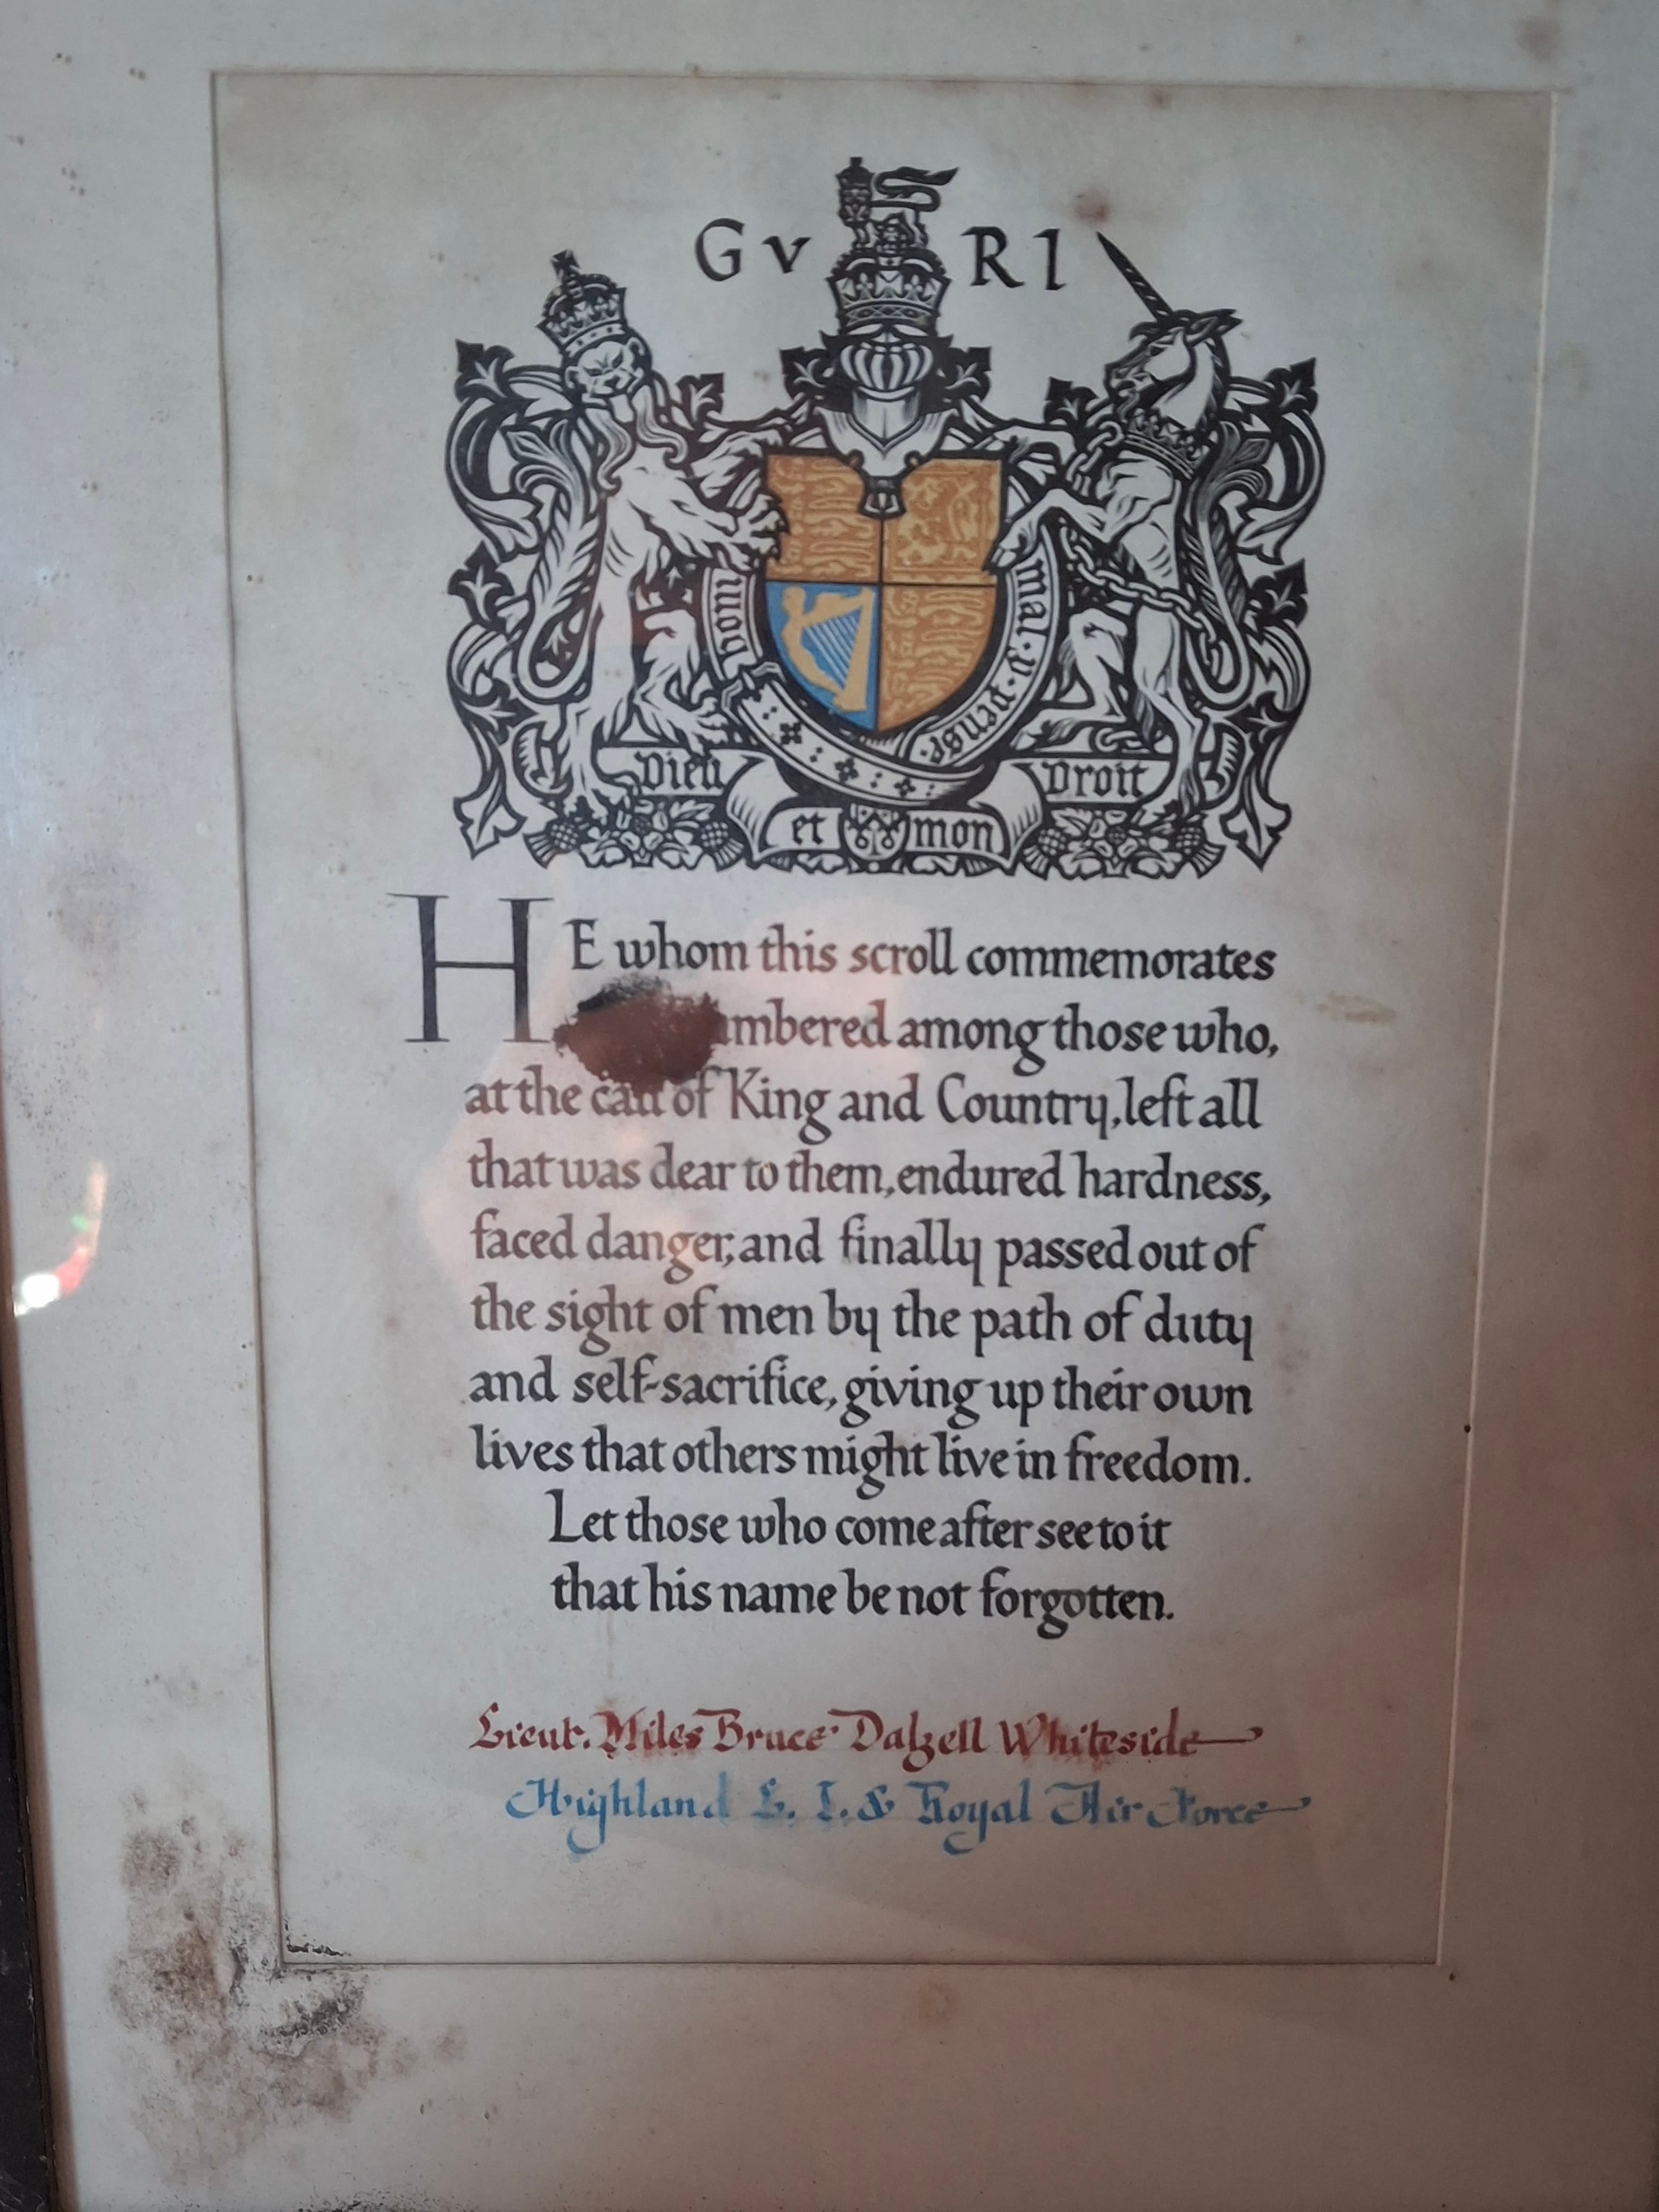 GV RI
honi mal·y·pense·
Dieu et mon Droit
HE whom this scroll commemorates
among those who,
at the call of King and Country, left all
that was dear to them, endured hardness,
faced danger, and finally passed out of
the sight of men by the path of duty
and self-sacrifice, giving up their own
lives that others might live in freedom.
Let those who come after see to it
that his name be not forgotten.
Lieut. Miles Bruce Dalzell Whiteside
Highland L. I. & Royal Air Force